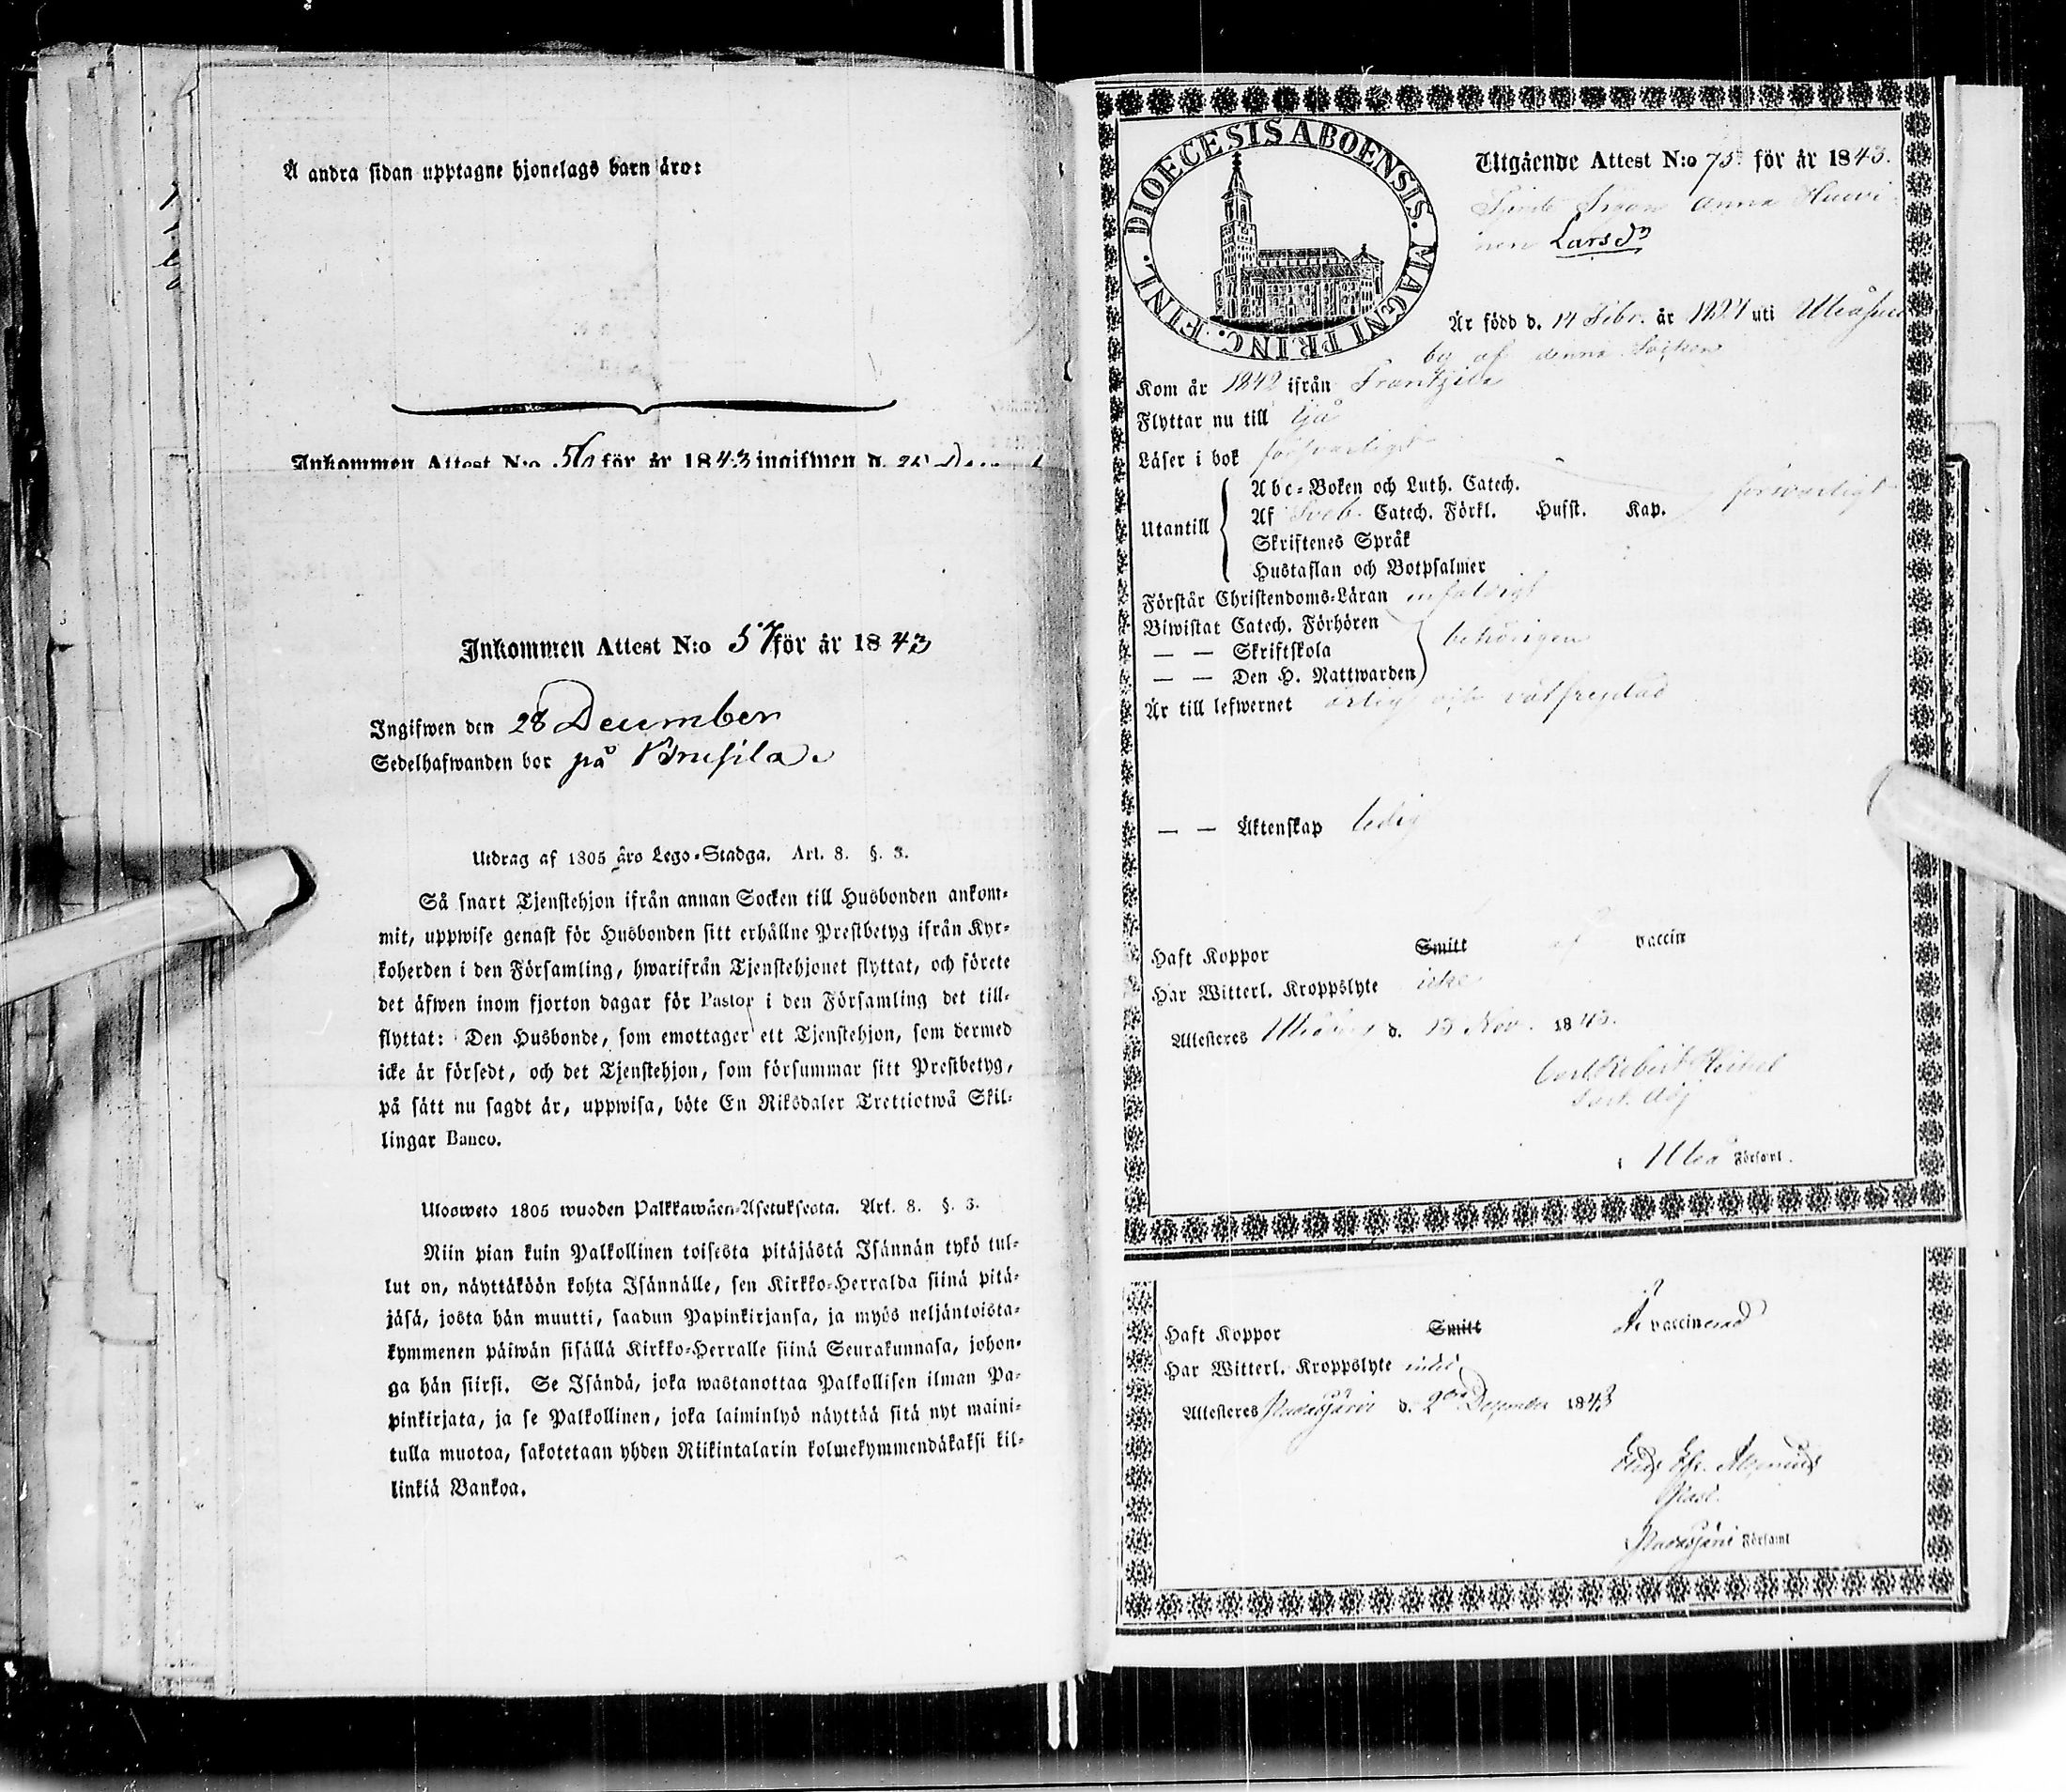 Å andra sidan upptagne hjonelags barn äro:
Inkommen Attest N:o 56 för år 1843 ingifwen d.
Inkommen Attest N:o 57 för år 1843
Ingifwen den 28 December
Sedelhafwanden bor på
Utdrag af 1805 års Lego-Stadga. Art. 8. §. 3.
Så snart Tjenstehjon ifrån annan Socken till Husbonden ankom-
mit, uppwise genast för Husbonden sitt erhållne Prestbetyg ifrån Kyr-
koherden i den Församling, hwarifrån Tjenstehjonet flyttat, och förete
det äfwen inom fjorton dagar för Pastor i den Församling det till-
flyttat: Den Husbonde, som emottager ett Tjenstehjon, som dermed
icke är försedt, och det Tjenstehjon, som försummar sitt Prestbetyg,
på sätt nu sagdt är, uppwisa, böte En Riksdaler Trettiotwå Skil-
lingar Banco.
Ulosweto 1805 wuoden Palkkawäen-Asetuksesta. Art. 8. §. 3.
Niin pian kuin Palkollinen toisesta pitäjästä Isännän tykö tul-
lut on, näyttäköön kohta Isännälle, sen Kirkko-Herralda siinä pitä-
jäsä, josta hän muutti, saadun Papinkirjansa, ja myös neljäntoista-
kymmenen päiwän sisällä Kirkko-Herralle siinä Seurakunnasa, johon-
ga hän siirsi. Se Isändä, joka wastanottaa Palkollisen ilman Pa-
pinkirjata, ja se Palkollinen, joka laiminlyö näyttää sitä nyt maini-
tulla muotoa, sakotetaan yhden Riikintalarin kolmekymmendäkaksi kil-
linkiä Bankoa.
DIOECESIS ABOENSIS. MAGNI PRINC. FINL.
Utgående Attest N:o 75 för år 1843.
Anna
Larsdr
Är född d. 14 Febr. år uti
by af denna Socken
Kom år 1842 ifrån Frantzila
Flyttar nu till Ijå
Läser i bok försvarligt
Abc-Boken och Luth. Catech.
Utantill Af Sveb. Catech. Förkl. Husst. Kap. försvarligt
Skriftenes Språk
Hustaflan och Botpsalmer
Förstår Christendoms-Läran enfaldigt
Biwistat Catech. Förhören
— — Skriftskola behörigen
— — Den H. Nattwarden
Är till lefwernet ärlig och välfrejdad
— — Äktenskap ledig
Haft Koppor Smitt af vaccin
Har Witterl. Kroppslyte icke
Attesteres Uleåborg d. 13 Nov. 1843.
Carl Robert
Past. Adj
i Uleå Församl.
Haft Koppor Smitt Är vaccinerad
Har Witterl. Kroppslyte intet
Attesteres Pudasjärvi d. 2 December 1843
Past.
i Pudasjärvi Församl